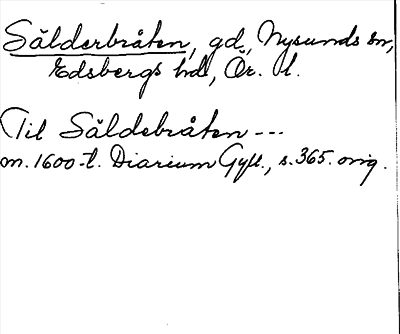 Sälderbråten, gd, Nysunds sn,
Edsbergs hd, Ör. l.
Til Säldebråten ---
m. 1600-t. Diarium Gyll., s. 365. orig.